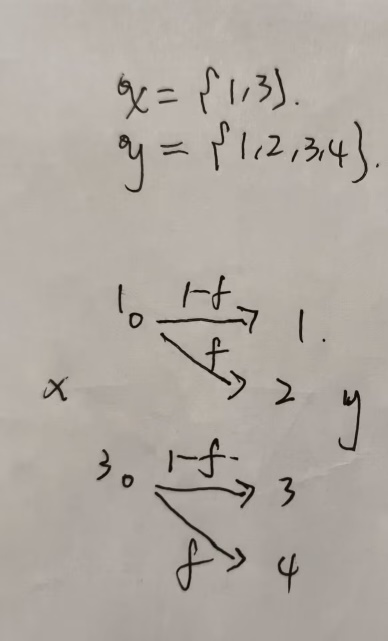 x = {1,3}.
y = {1,2,3,4}.
1 1-f 1.
f
x 2 y
3 1-f- 3
f 4